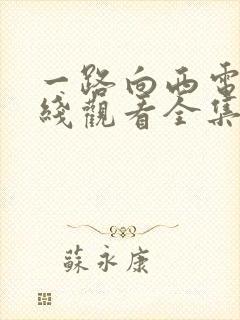 一路向西電
綫觀看全集
蘇永康